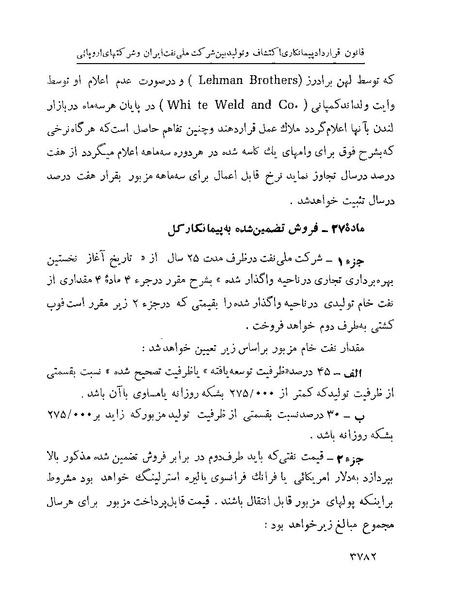 قانون قرارداد پیمانکاری اکتشاف و تولید بین شرکت ملی نفت ایران و شرکتهای اروپائی
که توسط لهن برادرز (Lehman Brothers ) و درصورت عدم اعلام او توسط
وایت ولد اند کمپانی ( Whi te Weld and Co. ) در پایان هر سه ماه در بازار
لندن بآنها اعلام گردد ملاك عمل قرار دهند و چنین تفاهم حاصل است که هرگاه نرخی
که بشرح فوق برای وامهای یك کاسه شده در هر دوره سه ماهه اعلام میگردد از هفت
درصد در سال تجاوز نماید نرخ قابل اعمال برای سه ماهه مزبور بقرار هفت درصد
در سال تثبیت خواهد شد .
مادۀ ۲۷ – فروش تضمین شده به پیمانکار کل
جزء ۱ – شرکت ملی نفت در ظرف مدت ۲۵ سال از « تاریخ آغاز نخستین
بهره برداری تجاری در ناحیه واگذار شده » بشرح مقرر در جزء ۴ مادۀ ۴ مقداری از
نفت خام تولیدی در ناحیه واگذار شده را بقیمتی که در جزء ۲ زیر مقرر است فوب
کشتی به طرف دوم خواهد فروخت .
مقدار نفت خام مزبور براساس زیر تعیین خواهد شد :
الف – ۴۵ درصد «ظرفیت توسعه یافته » یا ظرفیت تصحیح شده » نسبت بقسمتی
از ظرفیت تولید که کمتر از ۲۷۵/۰۰۰ بشکه روزانه یا مساوی با آن باشد .
ب – ۳۰ درصد نسبت بقسمتی از ظرفیت تولید مزبور که زاید بر ۲۷۵/۰۰۰
بشکه روزانه باشد .
جزء ۲ – قیمت نفتی که باید طرف دوم در برابر فروش تضمین شده مذکور بالا
بپردازد به دلار امریکائی یا فرانك فرانسوی یا لیره استرلینگ خواهد بود مشروط
براینکه پولهای مزبور قابل انتقال باشند . قیمت قابل پرداخت مزبور برای هر سال
مجموع مبالغ زیر خواهد بود :
۳۷۸۲